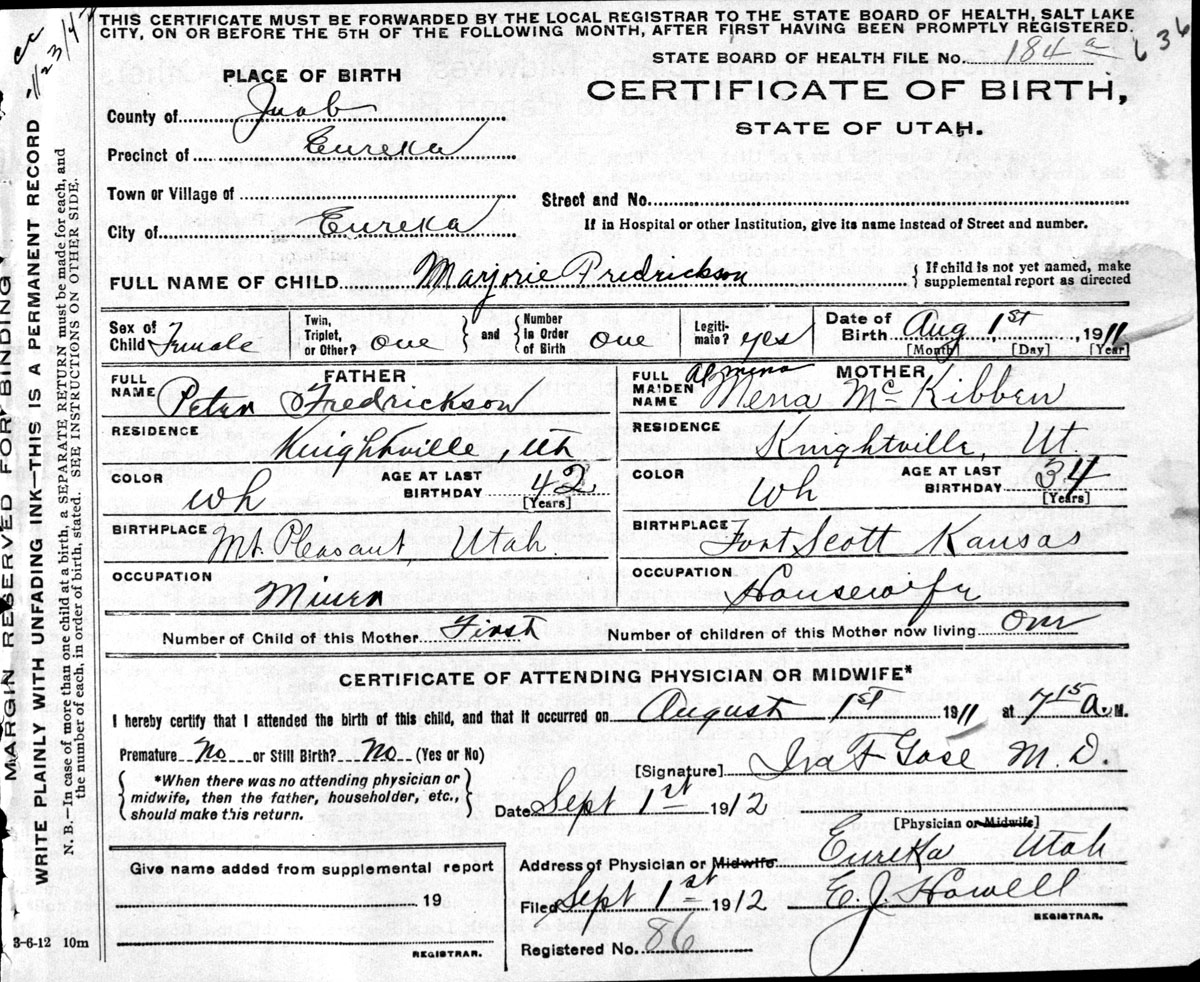 THIS CERTIFICATE MUST BE FORWARDED BY THE LOCAL REGISTRAR TO THE STATE BOARD OF HEALTH, SALT LAKE
CITY, ON OR BEFORE THE 5TH OF THE FOLLOWING MONTH, AFTER FIRST HAVING BEEN PROMPTLY REGISTERED.
STATE BOARD OF HEALTH FILE No. 184 a 636
PLACE OF BIRTH
CERTIFICATE OF BIRTH,
STATE OF UTAH.
County of Juab
Precinct of Eureka
Town or Village of
Street and No.
City of Eureka
If in Hospital or other Institution, give its name instead of Street and number.
FULL NAME OF CHILD Marjorie Fredrickson { If child is not yet named, make
supplemental report as directed
Sex of Child Female
Twin, Triplet, or Other? one } and { Number in Order of Birth one
Legiti-mate? yes
Date of Birth Aug 1st, 1911
[Month] [Day] [Year]
FATHER
FULL NAME Peter Fredrickson
RESIDENCE Knightville, Uth
COLOR wh AGE AT LAST BIRTHDAY 42 [Years]
BIRTHPLACE Mt. Pleasant, Utah.
OCCUPATION Miner
MOTHER
FULL MAIDEN NAME Almina Mena McKibben
RESIDENCE Knightville, Ut.
COLOR Wh AGE AT LAST BIRTHDAY 34 [Years]
BIRTHPLACE Fort Scott Kansas
OCCUPATION Housewife
Number of Child of this Mother First Number of children of this Mother now living One
CERTIFICATE OF ATTENDING PHYSICIAN OR MIDWIFE*
I hereby certify that I attended the birth of this child, and that it occurred on August 1st 1911 at 7 15 a. M.
Premature No or Still Birth? No (Yes or No)
{ *When there was no attending physician or
midwife, then the father, householder, etc.,
should make this return. }
[Signature] Ira F Gose M. D.
Date Sept 1st 1912
[Physician or Midwife]
Give name added from supplemental report
19
REGISTRAR.
Address of Physician or Midwife Eureka Utah
Filed Sept 1st 1912 E. J. Howell
REGISTRAR.
Registered No. 86
3-6-12 10m
MARGIN RESERVED FOR BINDING
WRITE PLAINLY WITH UNFADING INK—THIS IS A PERMANENT RECORD
N. B.—In case of more than one child at a birth, a SEPARATE RETURN must be made for each, and
the number of each, in order of birth, stated. SEE INSTRUCTIONS ON OTHER SIDE.